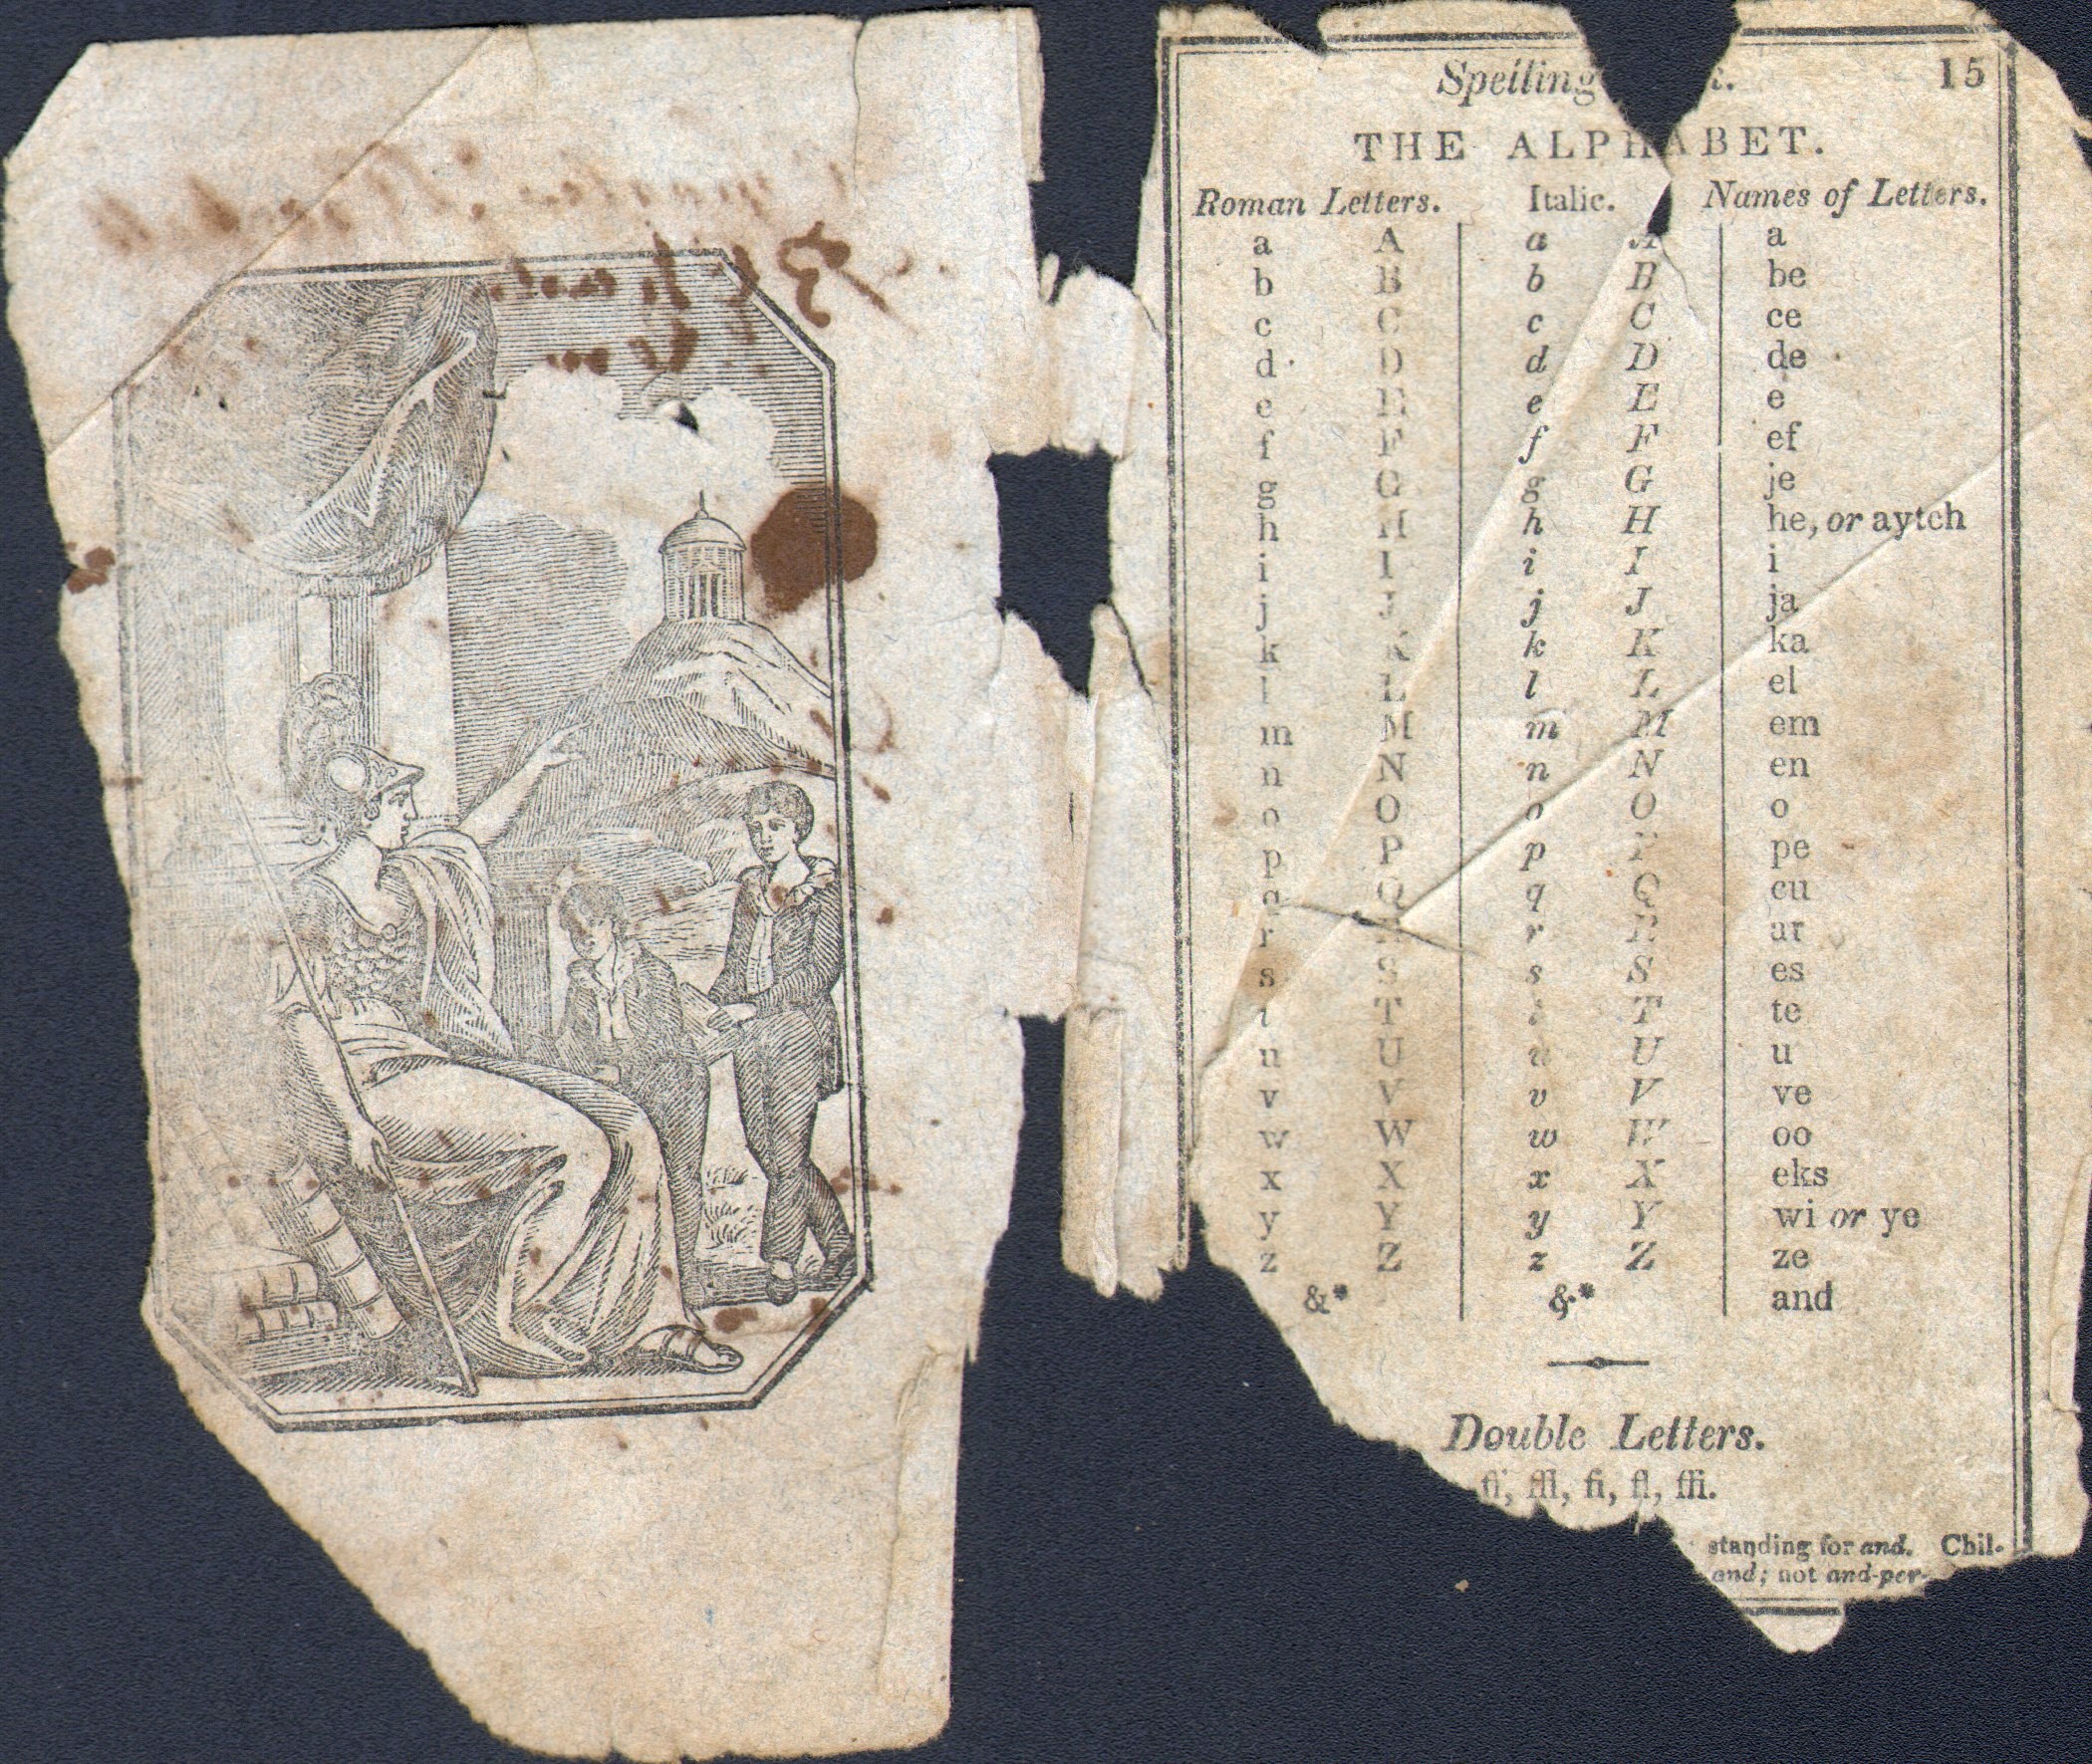 Spelling 15
THE ALPHABET.
Roman Letters. Italic. Names of Letters.
a A a A a
b B b B be
c C c C ce
d D d D de
e E e E e
f F f F ef
g G g G je
h H h H he, or aytch
i I i I i
j J j J ja
k K k K ka
l L l L el
m M m M em
n N n N en
o O o O o
p P p P pe
q Q q Q cu
r r R ar
s S s S es
t T t T te
u U u U u
v V v V ve
w W w W oo
x X x X eks
y Y y Y wi or ye
z Z z Z ze
&* &* and
Double Letters.
ffl, fi, fl, ffi.
standing for and. Chil-
and; not and-per-